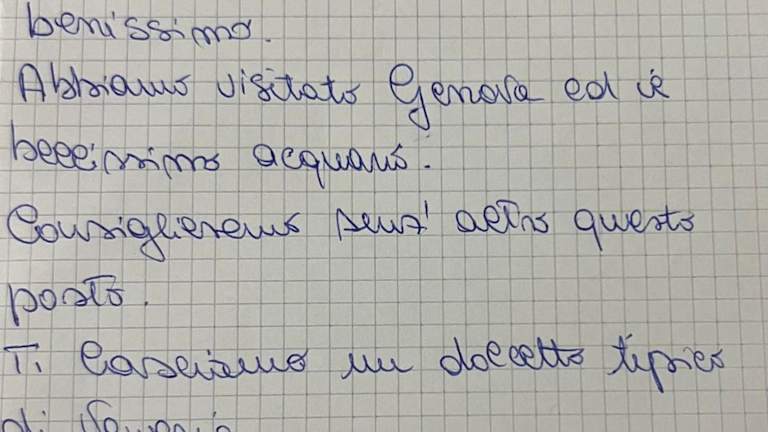 benissimo.
Abbiamo visitato Genova ed è
bellissimo acquario.
Consiglieremo senz' altro questo
posto.
Ti lasciamo un dolcetto tipico
di